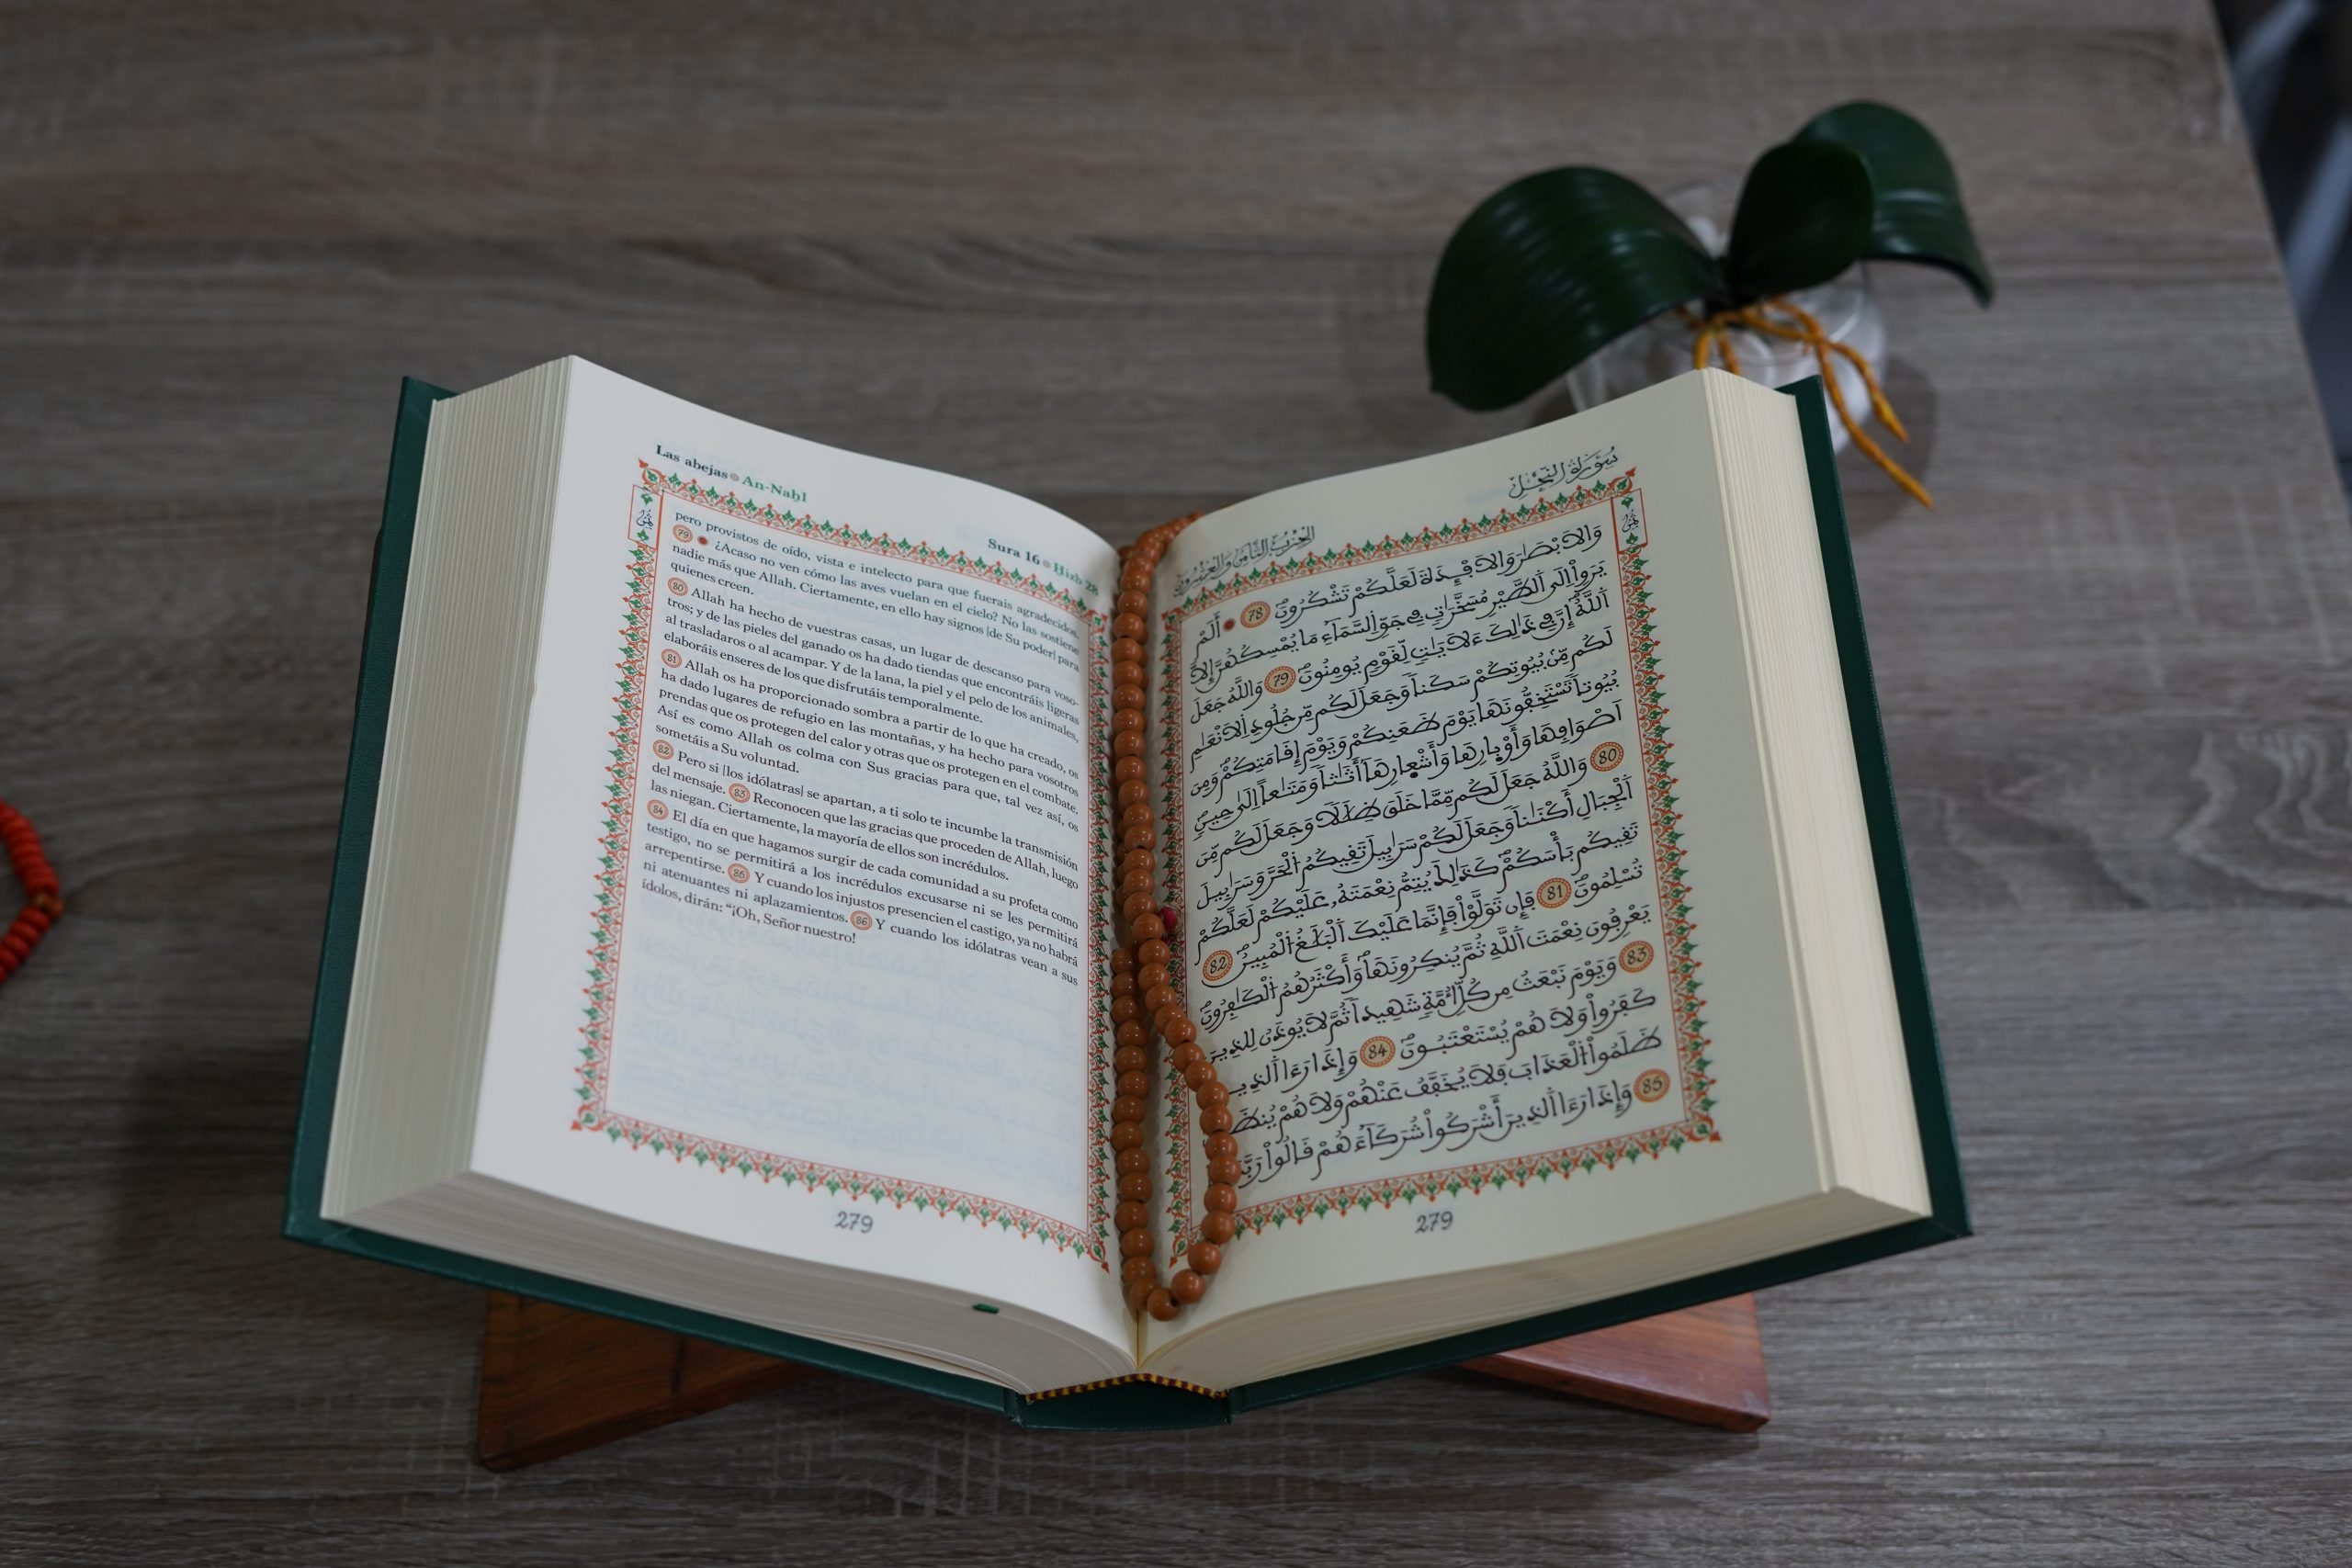 Las abejas An-Naḥl
Sura 16 Ḥizb 28
pero provistos de oído, vista e intelecto para que fuerais agradecidos.
79 ¿Acaso no ven cómo las aves vuelan en el cielo? No las sostiene
nadie más que Allah. Ciertamente, en ello hay signos |de Su poder| para
quienes creen.
80 Allah ha hecho de vuestras casas, un lugar de descanso para voso-
tros; y de las pieles del ganado os ha dado tiendas que encontráis ligeras
al trasladaros o al acampar. Y de la lana, la piel y el pelo de los animales,
elaboráis enseres de los que disfrutáis temporalmente.
81 Allah os ha proporcionado sombra a partir de lo que ha creado, os
ha dado lugares de refugio en las montañas, y ha hecho para vosotros
prendas que os protegen del calor y otras que os protegen en el combate.
Así es como Allah os colma con Sus gracias para que, tal vez así, os
sometáis a Su voluntad.
82 Pero si |los idólatras| se apartan, a ti solo te incumbe la transmisión
del mensaje. 83 Reconocen que las gracias que proceden de Allah, luego
las niegan. Ciertamente, la mayoría de ellos son incrédulos.
84 El día en que hagamos surgir de cada comunidad a su profeta como
testigo, no se permitirá a los incrédulos excusarse ni se les permitirá
arrepentirse. 85 Y cuando los injustos presencien el castigo, ya no habrá
ni atenuantes ni aplazamientos. 86 Y cuando los idólatras vean a sus
ídolos, dirán: “¡Oh, Señor nuestro!
279
سُورَةُ النَّحْلِ
الحزب الثامن والعشرون
وَالَابْصَٰرَ وَالَافْـِٕدَةَ لَعَلَّكُمْ تَشْكُرُونَ 78 أَلَمْ
يَرَوِاْ اِلَى اَلطَّيْرِ مُسَخَّرَٰتٍ فِي جَوِّ اِلسَّمَآءِ مَا يُمْسِكُهُنَّ إِلَّا
اَللَّهُ إِنَّ فِي ذَٰلِكَ ءَلَايَٰتٍ لِّقَوْمٍ يُومِنُونَ 79 وَاللَّهُ جَعَلَ
لَكُم مِّنۢ بُيُوتِكُمْ سَكَناً وَجَعَلَ لَكُم مِّن جُلُودِ اِلَانْعَٰمِ
بُيُوتاً تَسْتَخِفُّونَهَا يَوْمَ ظَعَنِكُمْ وَيَوْمَ إِقَامَتِكُمْ وَمِنَ
اَصْوَافِهَا وَأَوْبَارِهَا وَأَشْعَارِهَآ أَثَٰثاً وَمَتَٰعاً إِلَىٰ حِينٍ
80 وَاللَّهُ جَعَلَ لَكُم مِّمَّا خَلَقَ ظِلَٰلًا وَجَعَلَ لَكُم مِّنَ
اَلْجِبَالِ أَكْنَٰناً وَجَعَلَ لَكُمْ سَرَٰبِيلَ تَقِيكُمُ اُلْحَرَّ وَسَرَٰبِيلَ
تَقِيكُم بَأْسَكُمْ كَذَٰلِكَ يُتِمُّ نِعْمَتَهُۥ عَلَيْكُمْ لَعَلَّكُمْ
تُسْلِمُونَ 81 فَإِن تَوَلَّوْاْ فَإِنَّمَا عَلَيْكَ اَلْبَلَٰغُ اُلْمُبِينُ 82
يَعْرِفُونَ نِعْمَتَ اَللَّهِ ثُمَّ يُنكِرُونَهَا وَأَكْثَرُهُمُ اُلْكَٰفِرُونَ
83 وَيَوْمَ نَبْعَثُ مِن كُلِّ أُمَّةٍ شَهِيداً ثُمَّ لَا يُوذَنُ لِلذِينَ
كَفَرُواْ وَلَا هُمْ يُسْتَعْتَبُونَ 84 وَإِذَا رَءَا اَلذِينَ
ظَلَمُواْ اُلْعَذَابَ فَلَا يُخَفَّفُ عَنْهُمْ وَلَا هُمْ
85 وَإِذَا رَءَا اَلذِينَ أَشْرَكُواْ شُرَكَآءَهُمْ قَالُواْ
279